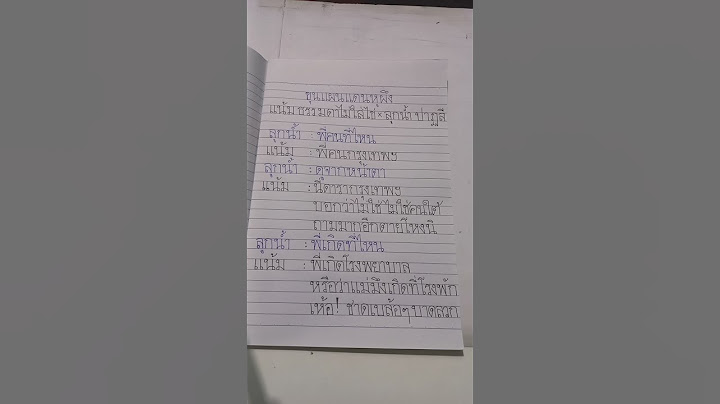 ขุนแผนแดนหุผึง
แน้ม ธรรมดาไม่ใส่ไข่ × ลูกน้ำ ปาฏลี
ลูกน้ำ : พี่คนที่ไหน
แน้ม : พี่คนกรุงเทพฯ
ลูกน้ำ : ดูจากหน้าตา
แน้ม : นี่ดารากรุงเทพฯ
บอกว่าไม่ใช่ ไม่ใช่คนใต้
ถามมากอีกตายโหงนิ
ลูกน้ำ : พี่เกิดที่ไหน
แน้ม : พี่เกิดโรงพยาบาล
หรือว่าแม่มึงเกิดที่โรงพัก
เห้อ! ชาดเบล้อๆ บาดสวก